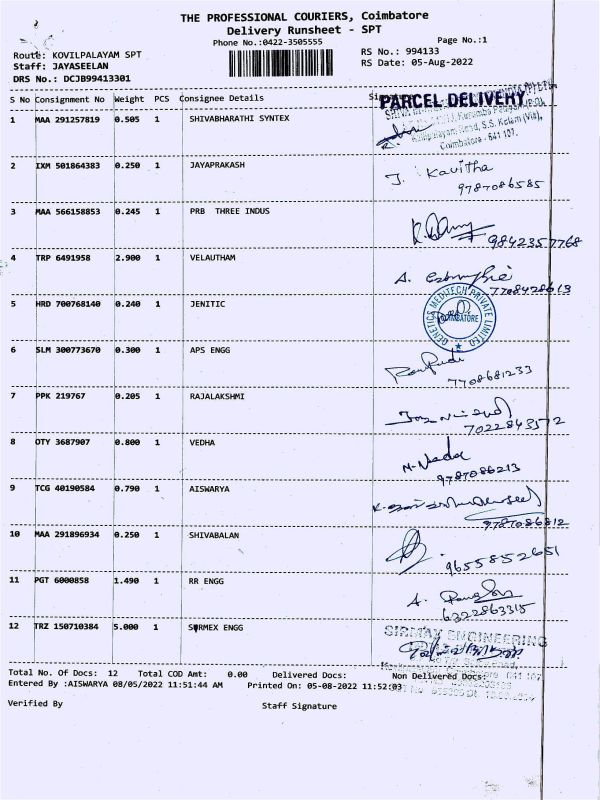 THE PROFESSIONAL COURIERS, Coimbatore
Delivery Runsheet - SPT
Phone No.:0422-3505555
Page No.:1
Route: KOVILPALAYAM SPT
RS No.: 994133
Staff: JAYASEELAN
RS Date: 05-Aug-2022
DRS No.: DCJB99413301
S No Consignment No Weight PCS Consignee Details
PARCEL DELIVERY
1 MAA 291257819 0.505 1 SHIVABHARATHI SYNTEX
S.S. Kulam (Via),
Coimbatore - 641 107.
2 IXM 501864383 0.250 1 JAYAPRAKASH J. Kavitha
9787086585
3 MAA 566158853 0.245 1 PRB THREE INDUS
9842357768
4 TRP 6491958 2.900 1 VELAUTHAM A.
7708428613
5 HRD 700768140 0.240 1 JENITIC
GENETICS MEDITECH PRIVATE LIMITED
COIMBATORE
6 SLM 300773670 0.300 1 APS ENGG
7708681233
7 PPK 219767 0.205 1 RAJALAKSHMI
7022843572
8 OTY 3687907 0.800 1 VEDHA N.
9787086213
9 TCG 40190584 0.790 1 AISWARYA
9787086812
10 MAA 291896934 0.250 1 SHIVABALAN
9655852651
11 PGT 6000858 1.490 1 RR ENGG A.
6322863315
12 TRZ 150710384 5.000 1 SURMEX ENGG
SIRMAX ENGINEERING
Total No. Of Docs: 12 Total COD Amt: 0.00 Delivered Docs: Non Delivered Docs:
Entered By :AISWARYA 08/05/2022 11:51:44 AM Printed On: 05-08-2022 11:52:03
Verified By Staff Signature